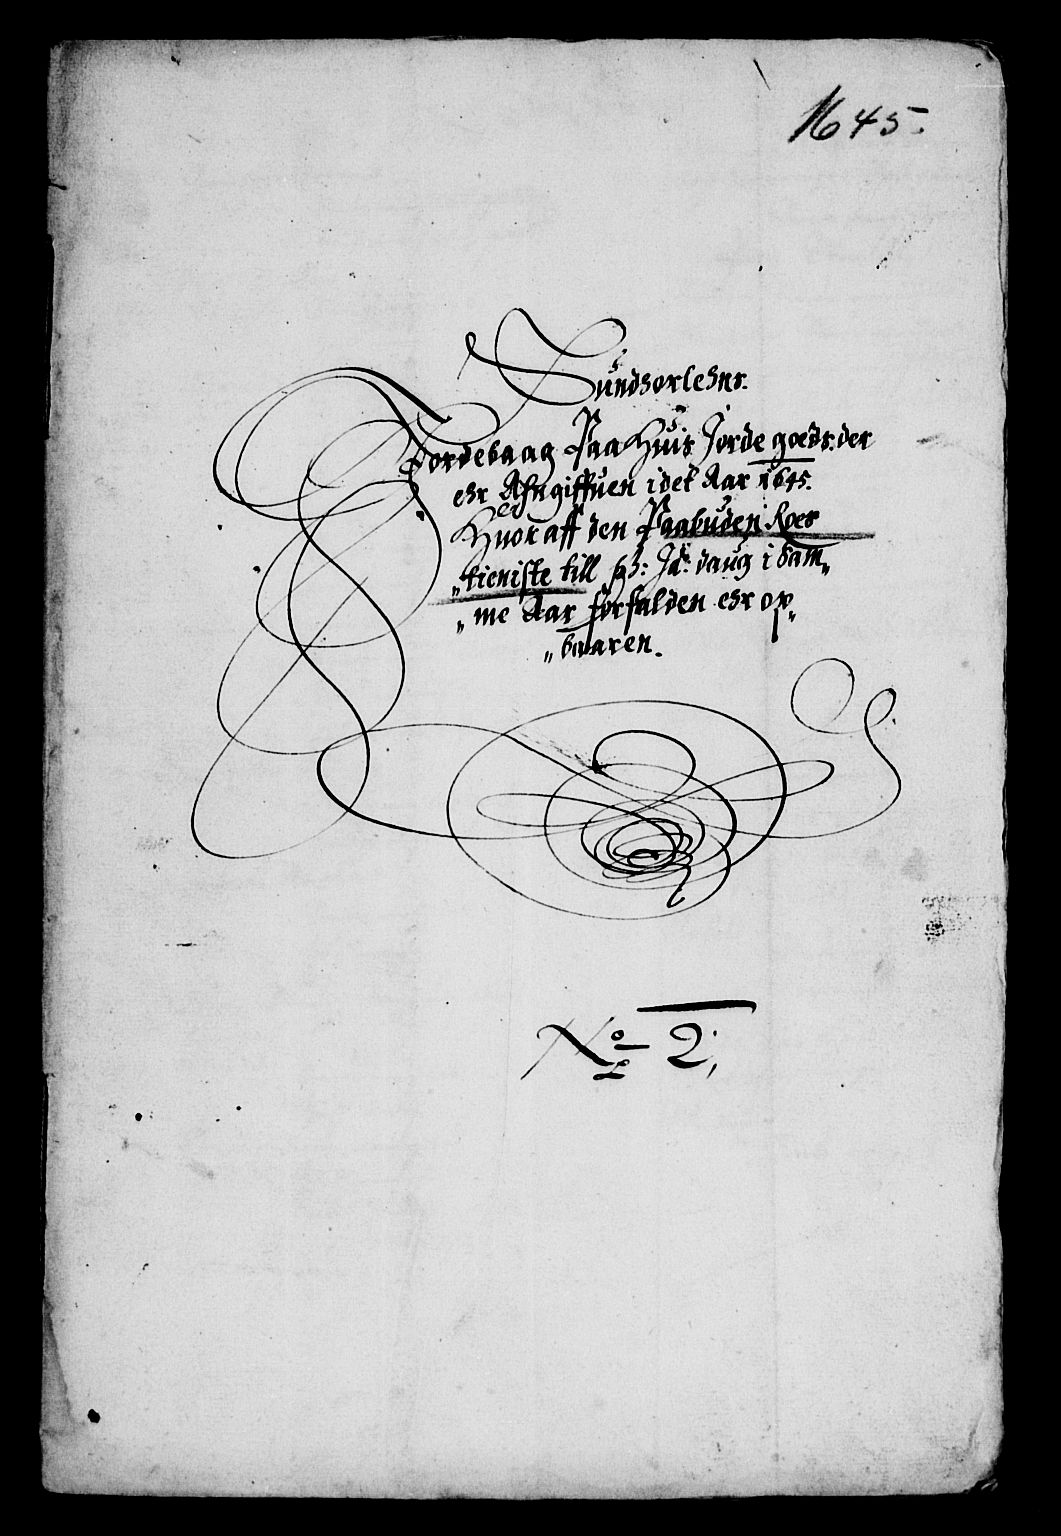 1645.
Sundsørlehns.
Jordebaag Paa Huis Jorde goeds. der
ehr Afngiffuen i det Aar 1645.
Huor aff den Paabuden Roes
„tieniste till St: Jd: daug i Sam„
„me Aar forfalden ehr op„
„baaren.
No 2,